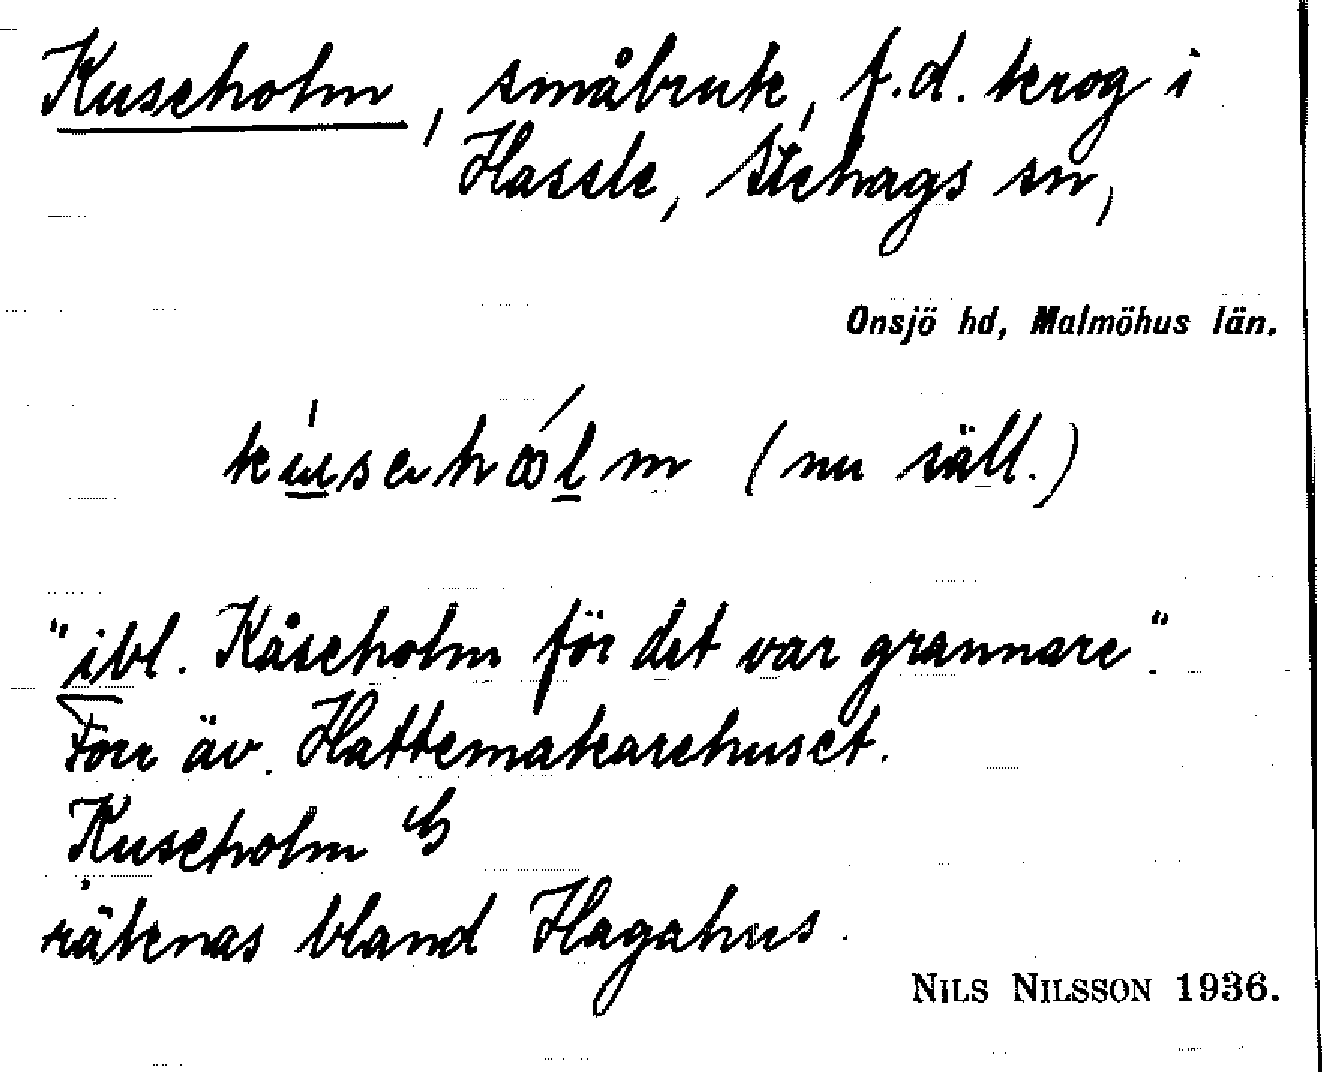 Kuseholm, småbruk, f.d. krog i
Hassle, Stehags sn,
Onsjö hd, Malmöhus län.
(nu säll.)
"ibl. Kåseholm för det var grannare".
Förr äv. Hattemakarehuset.
Kuseholm
räknas bland Hagahus.
NILS NILSSON 1936.